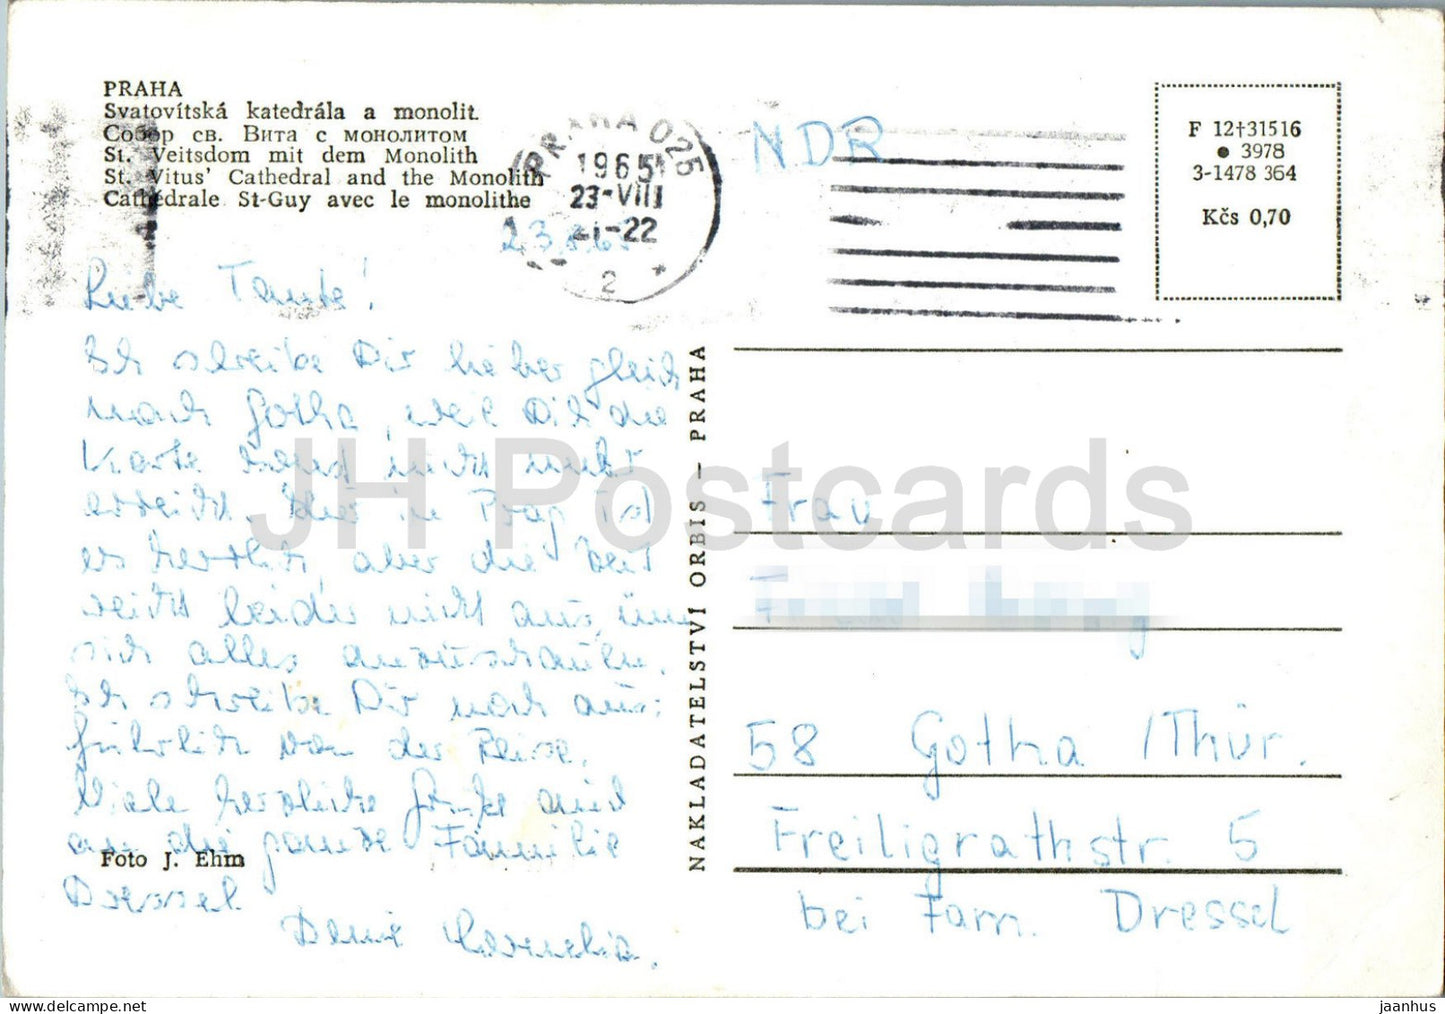 PRAHA
Svatovítská katedrála a monolit.
Собор св. Вита с монолитом
St. Veitsdom mit dem Monolith
St. Vitus' Cathedral and the Monolith
Cathédrale St-Guy avec le monolithe
PRAHA 025
1965
23-VIII
21-22
2
NDR
F 12†31516
● 3978
3-1478 364
Kčs 0,70
23.8.65
Liebe Tante!
Ich schreibe Dir lieber gleich
nach Gotha, weil Dich die
Karte sonst nicht mehr
erreicht. Hier in Prag ist
es herrlich, aber die Zeit
reicht leider nicht aus, um
sich alles anzuschauen.
Ich schreibe Dir noch aus-
führlich von der Reise.
Viele herzliche Grüße auch
an die ganze Familie
Dressel
Deine Cornelia.
Foto J. Ehm
NAKLADATELSTVÍ ORBIS – PRAHA
Frau
58 Gotha /Thür.
Freiligrathstr. 5
bei Fam. Dressel
JH Postcards
jaanhus